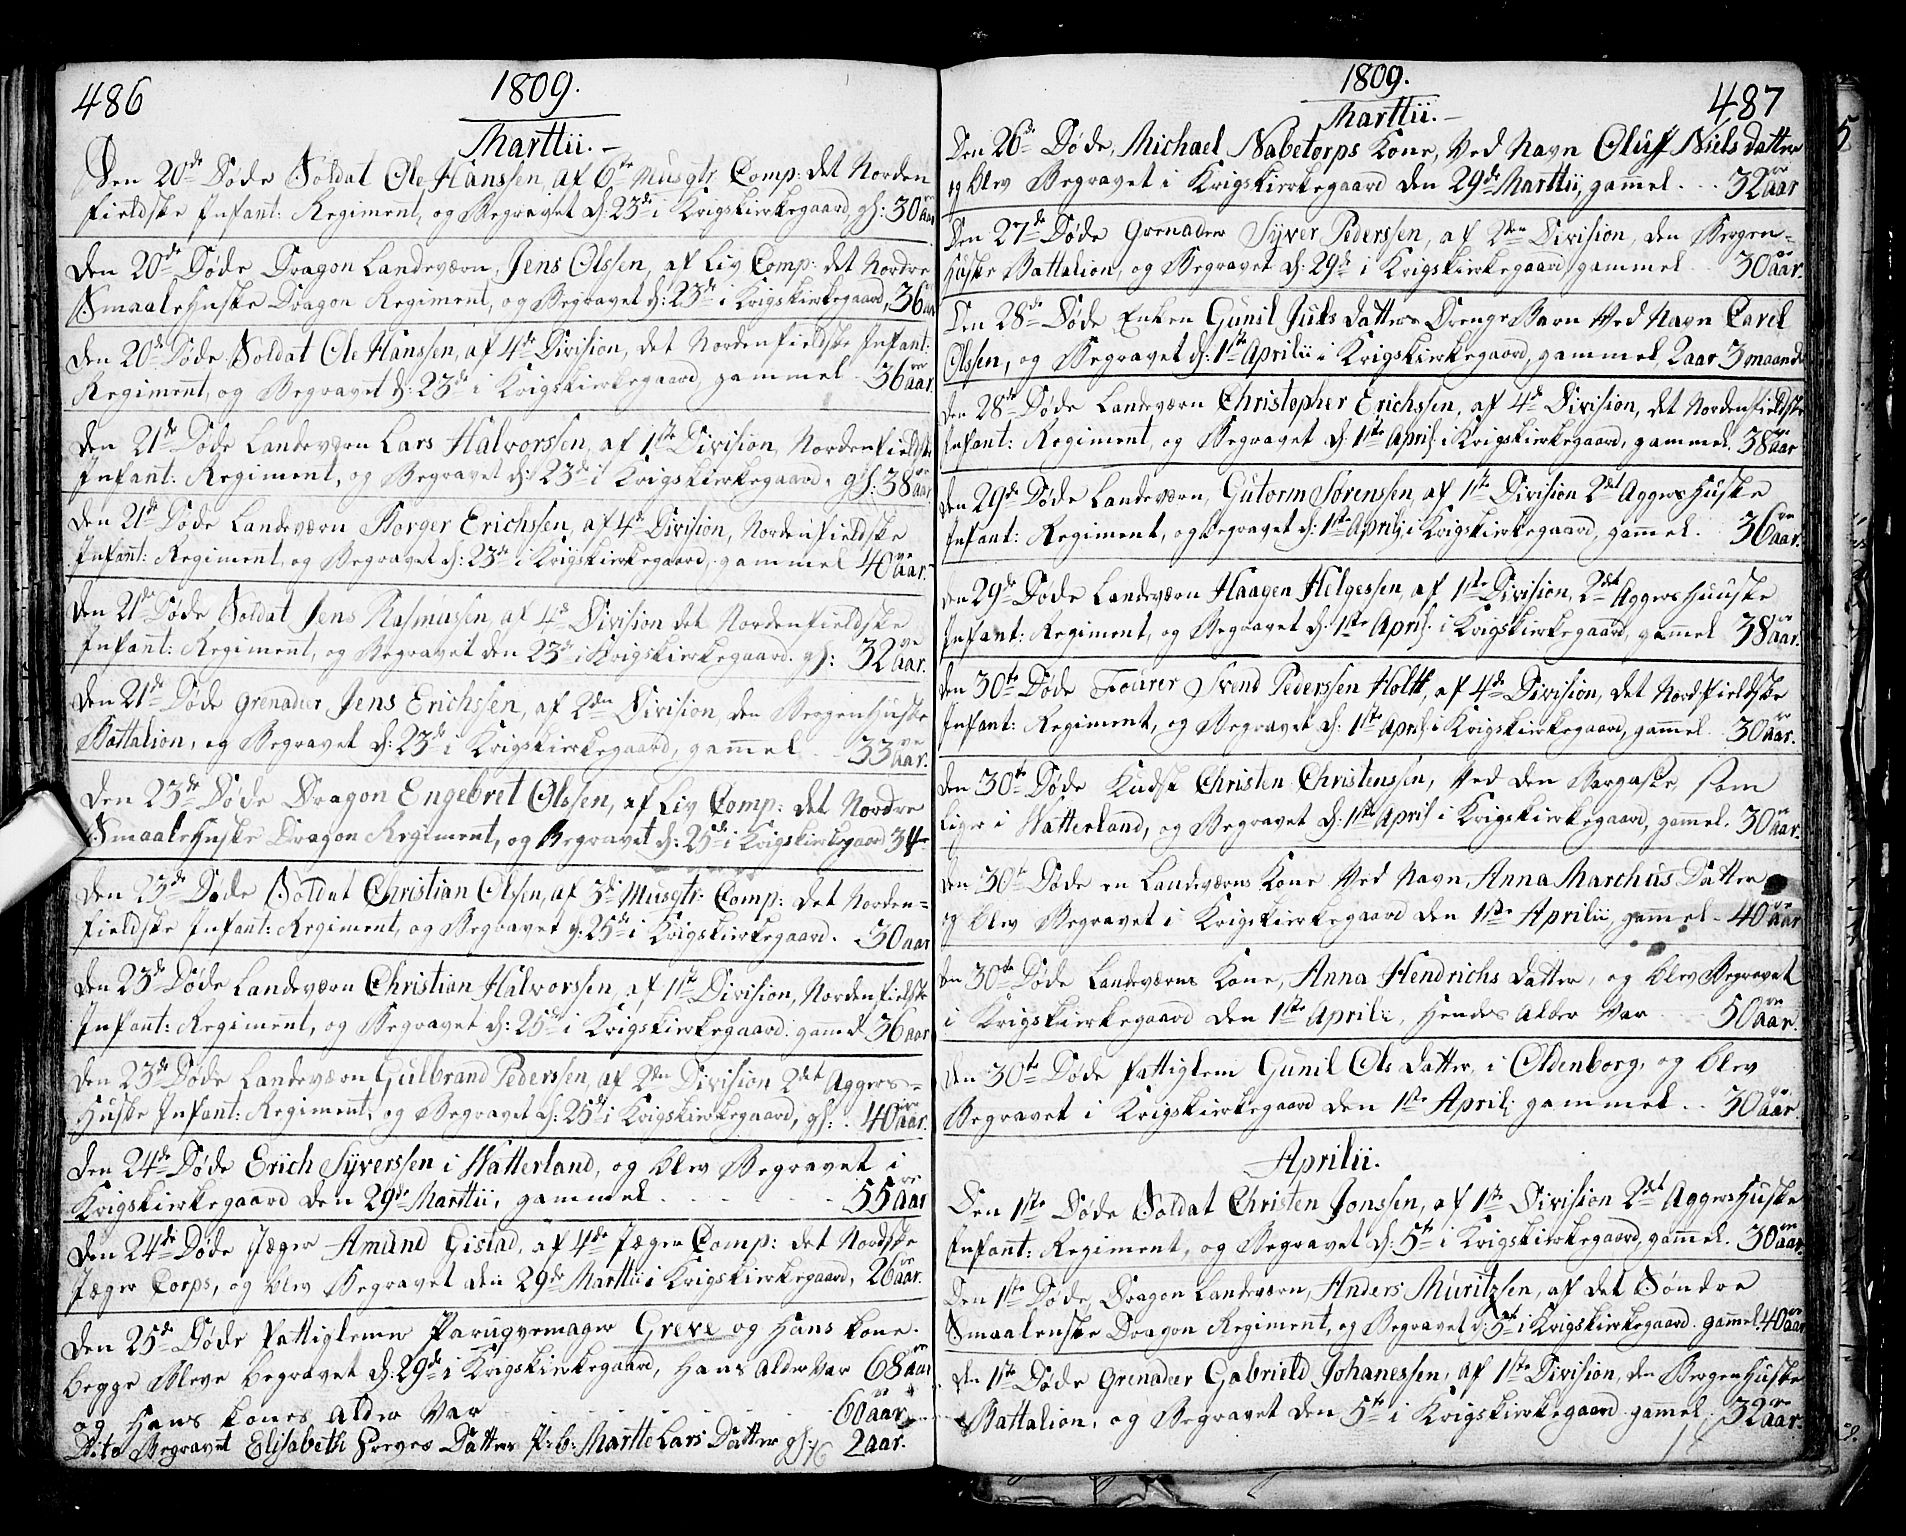 486
1809.
Marttii.
Den 20de Døde Soldat Ole Hanssen, af 6te Musqtr. Comp: det Norden
fieldske Infant: Regiment, og Begravet d: 23de i Krigskierkegaard, gl: 30 aar
Den 20de Døde Dragon Landeværn, Jens Olssen, af Liv Comp: det Nordre
Smaalehuske Dragon Regiment, og Begravet d: 23de i Krigskierkegaard, 36 aar
Den 20de Døde Soldat Ole Hanssen, af 4de Division, det Nordenfieldske Infant:
Regiment, og Begravet d: 23de i Krigskierkegaard, gammel 36 aar
Den 21de Døde Landeværn Lars Halvorssen, af 1ste Division, Nordenfieldske
Infant: Regiment, og Begravet d: 23de i Krigskierkegaard, gl: 38 aar
Den 21de Døde Landeværn Torger Erichssen, af 4de Division, Nordenfieldske
Infant: Regiment, og Begravet d: 23de i Krigskierkegaard, gammel 40 aar.
Den 21de Døde Soldat Jens Rasmussen, af 4de Division det Nordenfieldske
Infant: Regiment, og Begravet den 23de i Krigskierkegaard. gl: 32 aar.
Den 21de Døde Grenadeer Jens Erichssen, af 2den Division, den Bergenhuske
Battalion, og Begravet d: 23de i Krigskierkegaard, gammel 33 aar.
Den 23de Døde Dragon Engebret Olssen, af Liv Comp: det Nordre
Smaalehuske Dragon Regiment, og Begravet d: 25de i Krigskierkegaard 34
Den 23de Døde Soldat Christian Olsen, af 3de Musqtr: Comp: det Norden=
fieldske Infant: Regiment, og Begravet d: 25de i Krigskierkegaard. 30 aar
Den 23de Døde Landeværn Christian Halvorssen, af 1ste Division, Nordenfieldske
Infant: Regiment, og Begravet d: 25de i Krigskierkegaard. gamel 36 aar
Den 23de Døde Landeværn Gulbrand Pederssen, af 2den Division 2det Aggers=
Huske Infant: Regiment, og Begravet d: 25de i Krigskierkegaard, gl: 40 aar.
Den 24de Døde Erich Syverssen i Watterland, og blev Begravet i
Krigskierkegaard den 29de Marttii, gammel 55 aar
Den 24de Døde Jæger Amund Gistad, af 4de Jæger Comp: det Nordske
Jæger Corps, og blev Begravet den 29de Marttii i Krigskierkegaard, 26 aar.
Den 25de Døde Fattiglemer Parugvemager Greve og Hans Kone.
begge bleve begravet d: 29de i Krigskierkegaard, Hans Alder Var 68 aar
og Hans Kones Alder Var 60 aar
Dito Begravet Elisabeth Greves Datter P: b: Martte Lars Datter gl: 2 aar.
1809.
487
Marttii.
Den 26de Døde, Michael Nabetorps Kone, Ved Navn Oluff Niels datter
og blev Begravet i Krigskierkegaard den 29de Marttii, gamel 32 aar
Den 27de Døde Grenadeer Syver Pederssen, af 2den Division, den Bergen=
huske Battalion, og Begravet d: 29de i Krigskierkegaard gammel 30 aar.
Den 28de Døde Enken Gunil Juls datters Drenge Barn Ved Navn Carel
Olssen, og Begravet d: 1ste Aprilii i Krigskierkegaard, gammel, 2 aar 3 maaneder
Den 28de Døde Landeværn Christopher Erichssen, af 4de Division, det Nordenfieldske
Infant: Regiment, og Begravet d: 1ste April i Krigskierkegaard, gammel. 38 aar
Den 29de Døde Landeværn, Gutorm Sørenssen, af 1ste Division 2det Aggershuske
Infant: Regiment, og Begravet d: 1ste Aprilj i Krigskierkegaard, gammel. 36 aar.
Den 29de Døde Landeværn Haagen Helgessen, af 1ste Division, 2det Aggers Huuske
Infant: Regiment, og Begravet d: 1ste April i Krigskierkegaard, gammel 38 aar.
Den 30te Døde Fourer Svend Pederssen Holtt, af 4de Division, det Nordfieldske
Infant: Regiment, og Begravet d: 1ste April i Krigskierkegaard, gammel. 30 aar.
Den 30te Døde Kudsk Christen Christenssen, Ved den Bagaske, som
liger i Watterland, og Begravet d: 1ste April i Krigskierkegaard, gammel. 30 aar.
Den 30te Døde en Landeværns Kone Ved Navn, Anna Marchus Datter,
og blev Begravet i Krigskierkegaard den 1ste Aprilii, gammel 40 aar
Den 30te Døde Landeværns Kone, Anna Hendrichs datter, og blev Begravet
i Krigskierkegaard den 1ste Aprili, Hendes Alder Var 50 aar.
Den 30te Døde Fattiglem Gunil Ols datter, i Oldenborg, og blev
Begravet i Krigskierkegaard den 1ste April: gammel 30 aar
Aprilii.
Den 1ste Døde Soldat Christen Jonssen, af 1ste Division 2det Aggershuske
Infant: Regiment, og Begravet d: 5te i Krigskierkegaard, gammel. 30 aar.
Den 1ste Døde, Dragon Landeværn, Anders Muritzsen, af det Søndre
Smaalenske Dragon Regiment, og Begravet d: 5te i Krigskierkegaard. gammel 40 aar
Den 1ste Døde Grenadeer Gabriild Johanessen, af 1ste Division, den Bergenhuske
Battalion, og Begravet den 5te i Krigskierkegaard gammel. 32 aar.